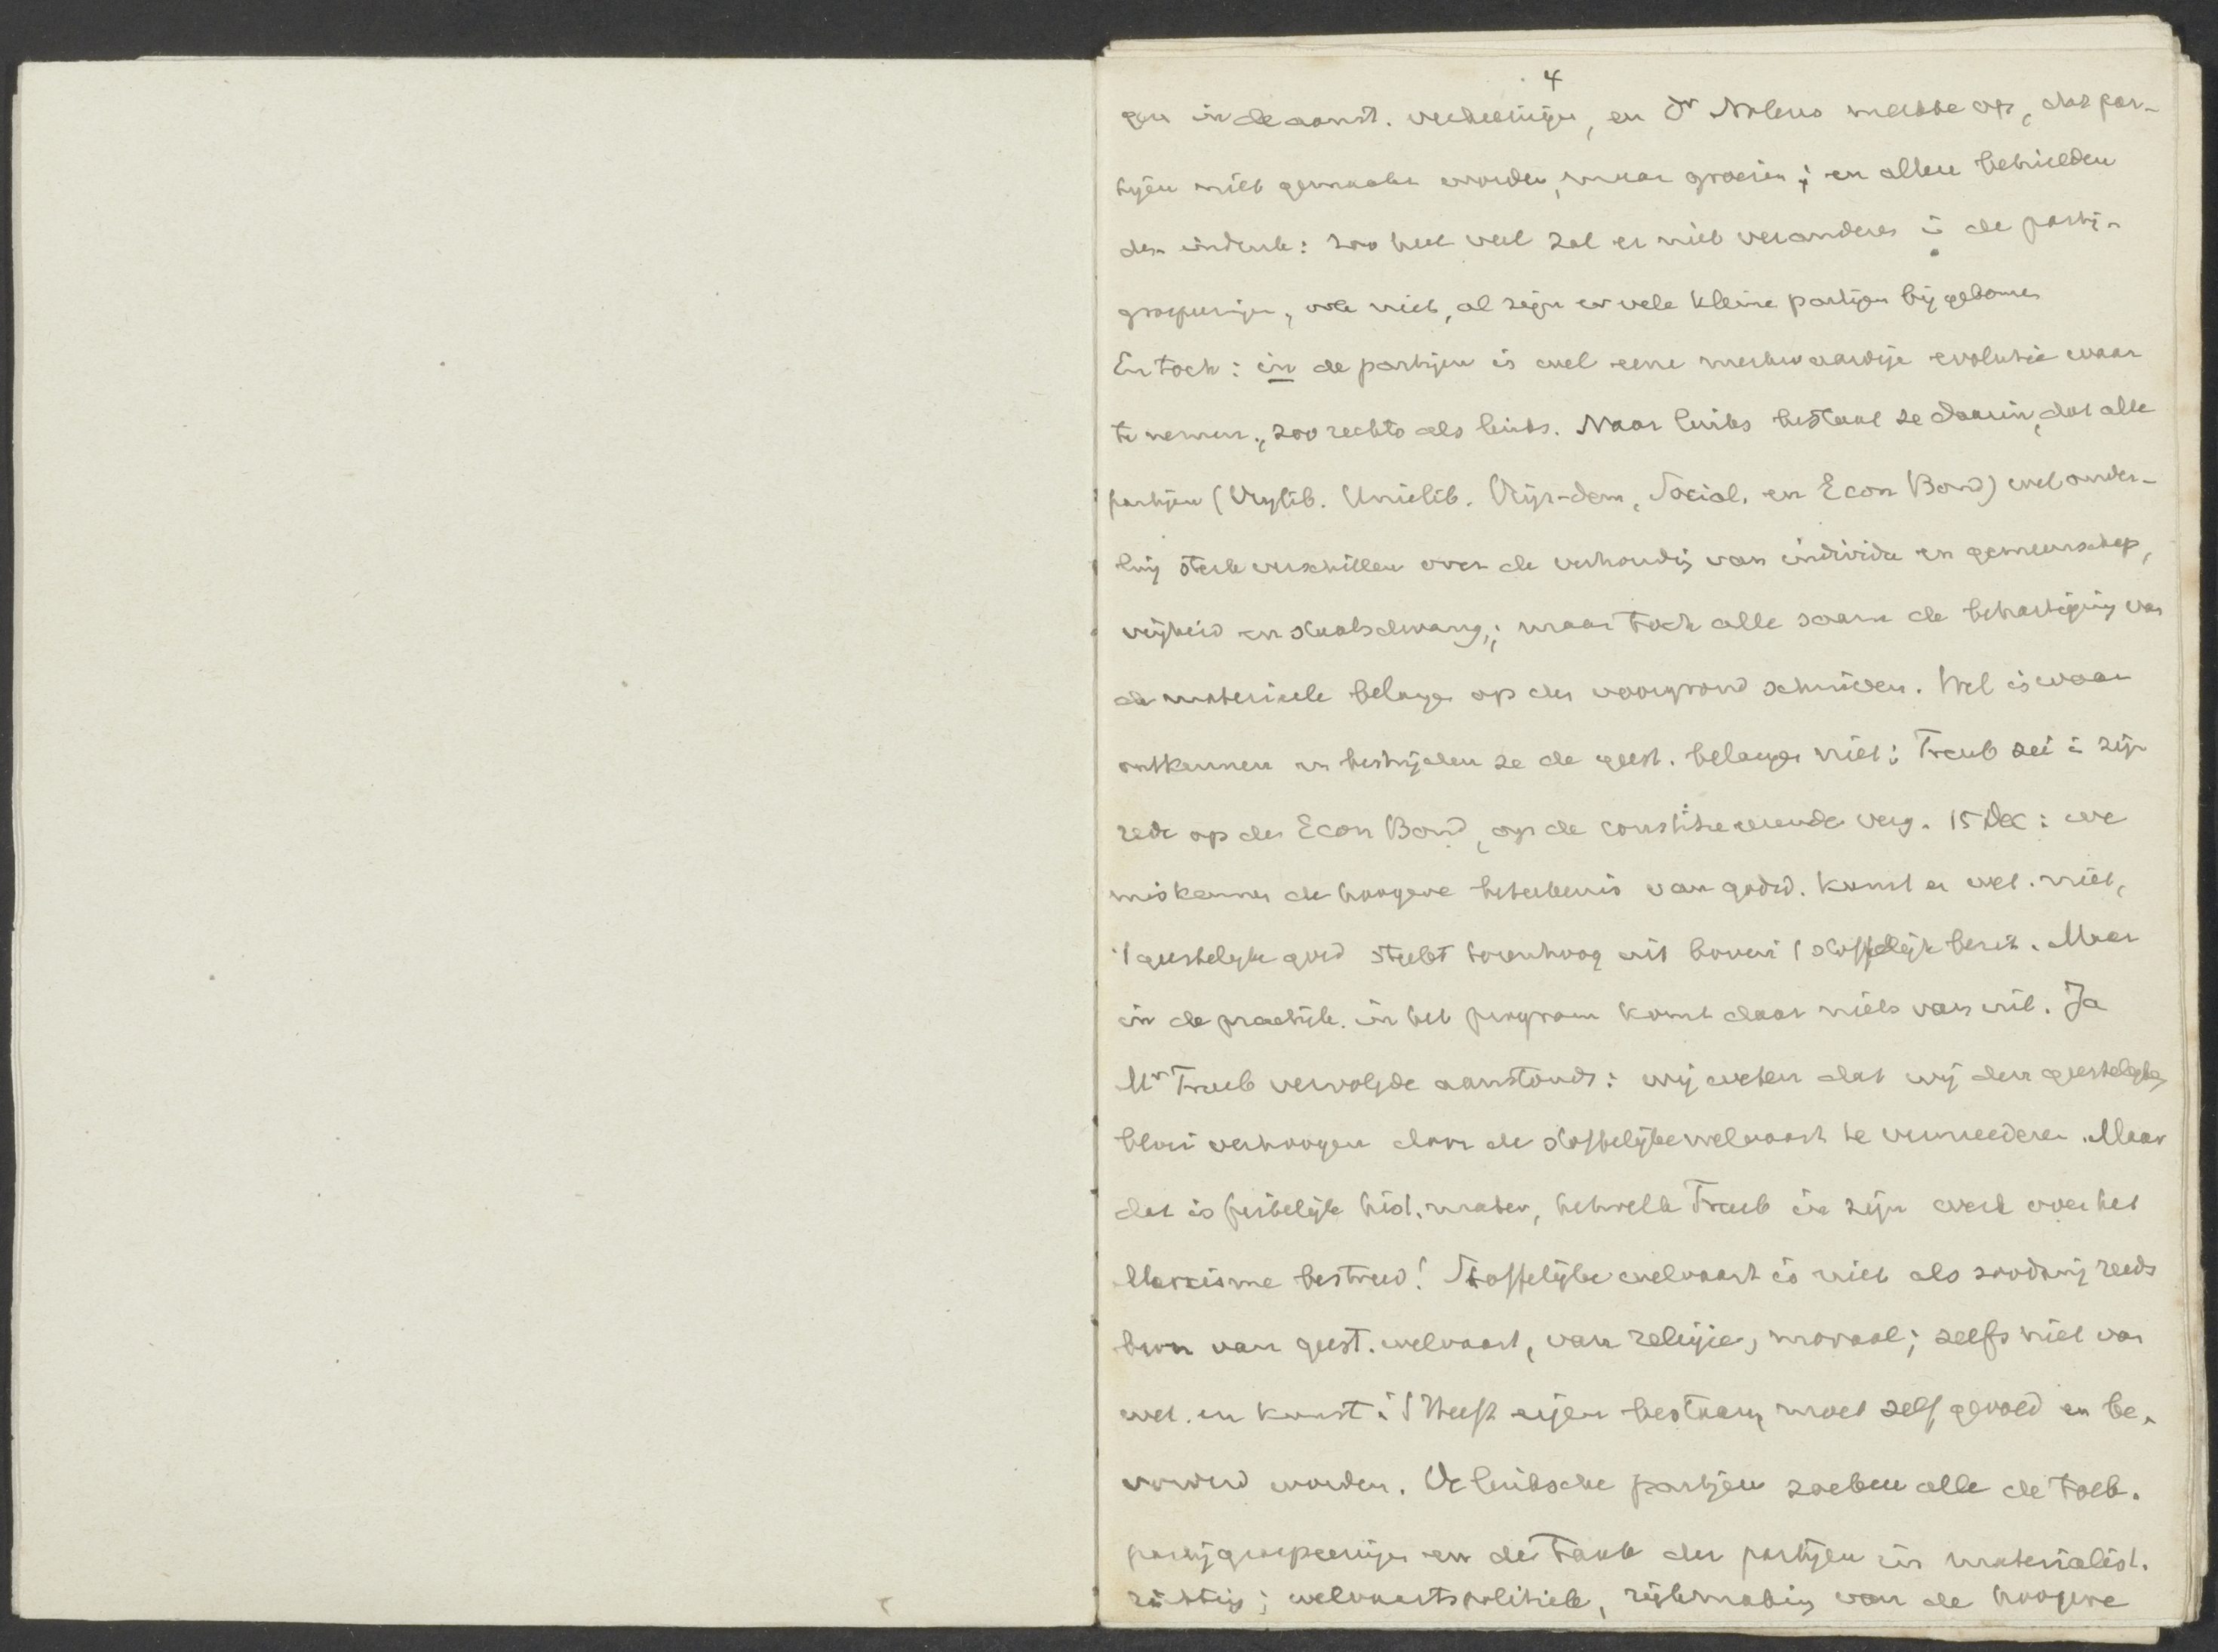 4
gen in de aanst. verkiezingen, en Dr Nolens merkte op, dat par-
tijen niet gemaakt worden, maar groeien; en allen behielden
den indruk: zoo heel veel zal er niet veranderen in de partij-
groepeeringen, ook niet, al zijn er vele kleine partijen bij gekomen
En toch: in de partijen is wel eene merkwaardige evolutie waar
te nemen, zoo rechts als links. Naar links bestaat ze daarin, dat alle
partijen (Vrijlib. Unielib. Vrijz-dem, Social. en Econ Bond) wel onder-
ling sterk verschillen over de verhouding van individu en gemeenschap,
vrijheid en staatsdwang,; maar toch alle saam de behartiging van
de materieele belangen op den voorgrond schuiven. Wel is waar
ontkennen en bestrijden ze de geest. belangen niet: Treub zei in zijn
rede op den Econ Bond, op de constitueerende verg. 15 Dec: we
miskennen de hoogere beteekenis van godsd. kunst en wet. niet,
't geestelijk goed steekt torenhoog uit boven 't stoffelijk bezit. Maar
in de practijk. in het program komt daar niets van uit. Ja
Mr Treub vervolgde aanstonds: wij weten dat wij den geestelijken
bloei verhoogen door de stoffelijke welvaart te vermeederen. Maar
dat is feitelijk hist. mater, hetwelk Treub in zijn werk over het
Marxisme bestreed! Stoffelijke welvaart is niet als zoodanig reeds
bron van geest. welvaart, van religie, moraal; zelfs niet van
wet. en kunst: 't Heeft eigen bestaan, moet zelf gevoed en be-
vorderd worden. De linksche partijen zoeken alle de toek.
partijgroepeeringen en de taak der partijen in materialist.
richting; welvaartspolitiek, rijkmaking van de hoogere